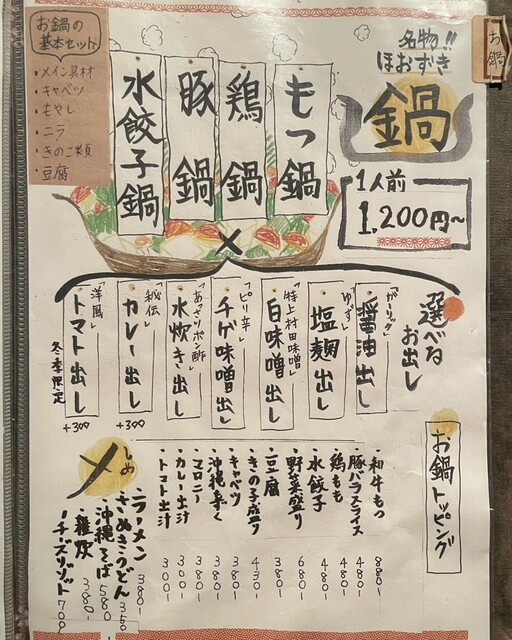 お鍋
名物!!
ほおずき
鍋
1人前
1,200円~
お鍋の
基本セット
・メイン具材
・キャベツ
・もやし
・ニラ
・きのこ類
・豆腐
もつ鍋
鶏鍋
豚鍋
水餃子鍋
×
選べるお出し
「ガーリック」
醤油出し
「ゆず」
塩麹出し
「特上村田味噌」
白味噌出し
「ピリ辛」
チゲ味噌出し
「あっさりポン酢」
水炊き出し
「秘伝」
カレー出し
+300
「洋風」
トマト出し
+300
冬季限定
お鍋トッピング
・和牛もつ 880-
・豚バラスライス 480-
・鶏もも 480-
・水餃子 480-
・野菜盛り 680-
・豆腐 380-
・きのこ盛り 430
・キャベツ 380-
・沖縄
・マロニー 380-
・カレー出汁 300-
・トマト出汁 300-
しめ
〆
・ラーメン 380-
・さぬきうどん 350
・沖縄そば 580
・雑炊 380-
・チーズリゾット 700